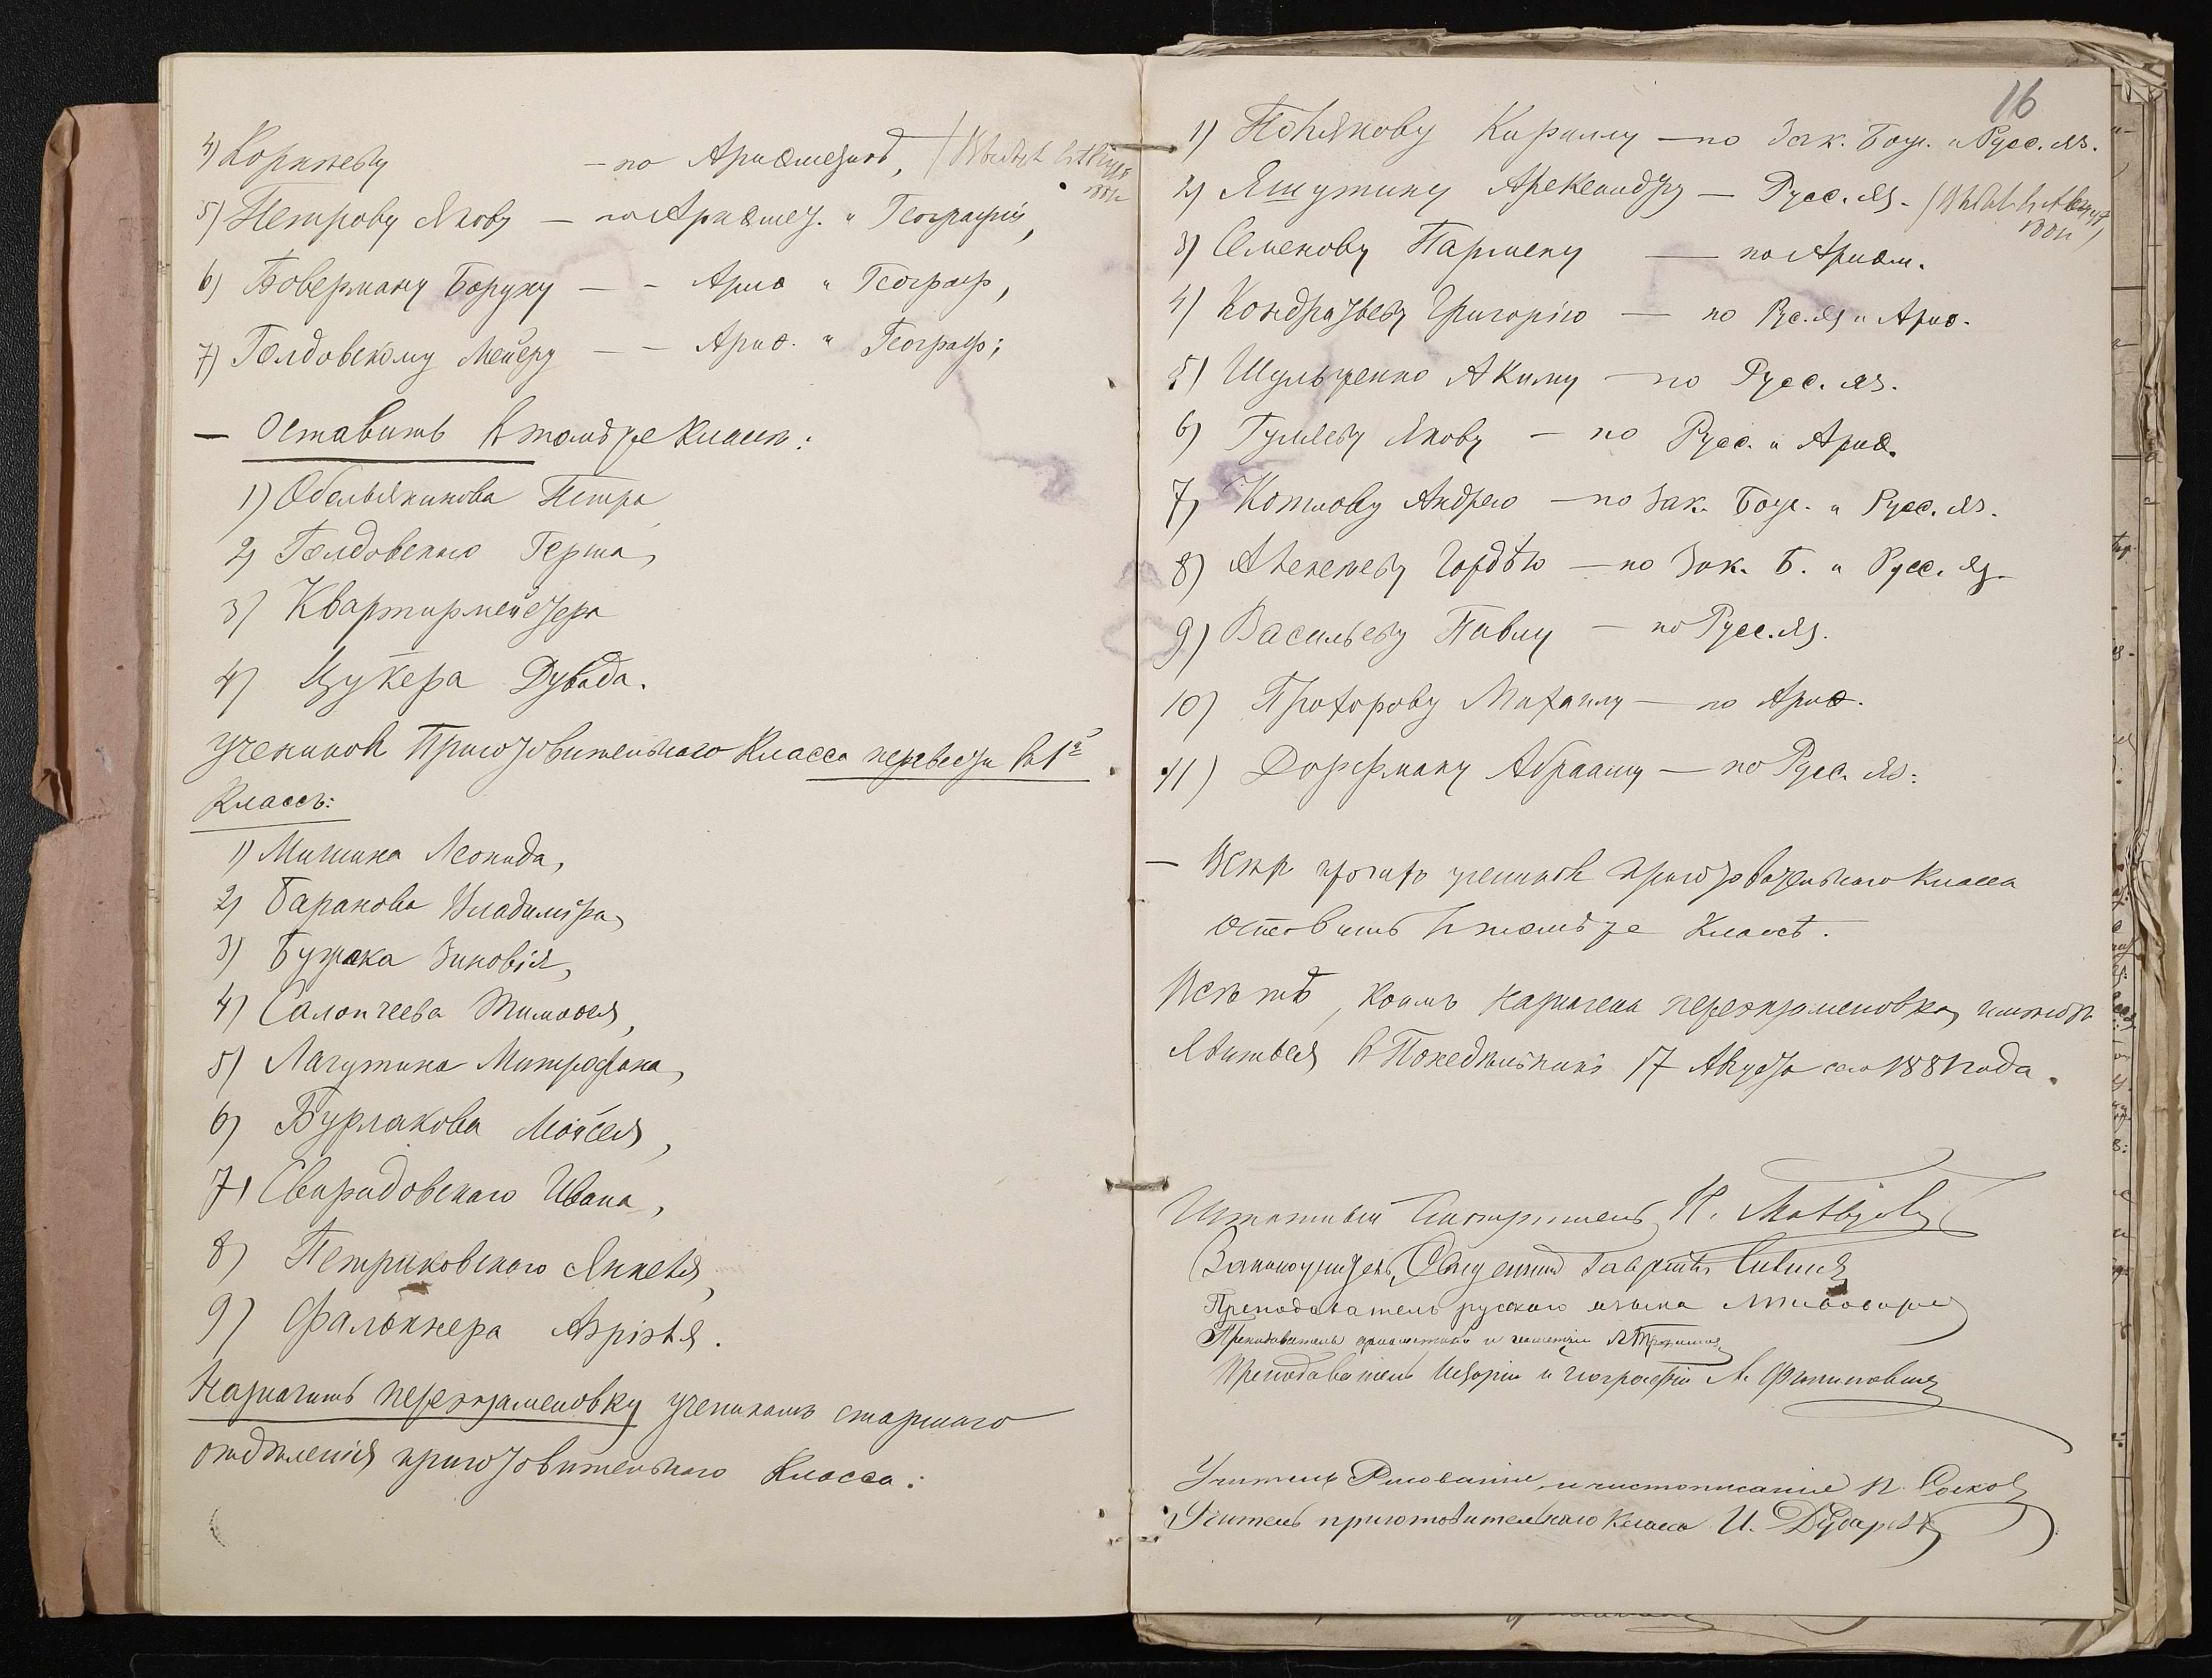 4) Коржневу — по Ариѳметикѣ,
5) Петрову Якову — по Ариѳмет. и Географіи,
6) Боверману Боруху — — Ариѳ. и Географ,
7) Голдовскому Мейеру — — Ариѳ. и Географ;
— Оставить въ томъ же классѣ:
1) Обельянинова Петра
2) Голдовскаго Герша,
3) Квартирмейстера
4) Цукера Дувида.
Учениковъ Приготовительнаго Класса перевести въ 1й
Классъ:
1) Мишина Леонида,
2) Баранова Владиміра,
3) Бужака Зиновія,
4) Салопчеева Тимоѳея,
5) Лагутина Митрофана,
6) Бурлакова Моисея,
7) Свиридовскаго Ивана,
8) Петриковскаго Янкеля,
9) Фалькнера Азріэля.
Назначить переэкзаменовку ученикамъ старшаго
отдѣленія приготовительнаго Класса:
16
1) Полякову Кириллу — по Зак. Бож. и Русс. яз.
2) Яшутину Александру — Русс. яз.
3) Семенову Пармену — по Ариѳм.
4) Кондратьеву Григорію — по Рус. яз. и Ариѳ.
5) Шульженко Акиму — по Русс. яз.
6) Гуляеву Якову — по Русс. и Ариѳ.
7) Котлову Андрею — по Зак. Бож. и Русс. яз.
8) Гордѣю — по Зак. Б. и Русс. яз.
9) Васильеву Павлу — по Русс. яз.
10) Прохорову Михаилу — по Ариѳ.
11) Дорфману Абраму — по Русс. яз:
— Всѣхъ прочихъ учениковъ приготовительнаго Класса
оставить въ томъ же Классѣ.
Всѣ тѣ, коимъ назначена переэкзаменовка, имѣютъ
явиться въ Понедѣльникъ 17 Августа сего 1881 года.
Штатный Смотритель
Законоучитель, Священникъ
Преподаватель русскаго языка
Преподаватель ариѳметики и геометріи
Преподаватель Исторіи и географіи М. Филиповичъ
Учитель Рисованія и чистописанія
Учитель приготовительнаго класса И.